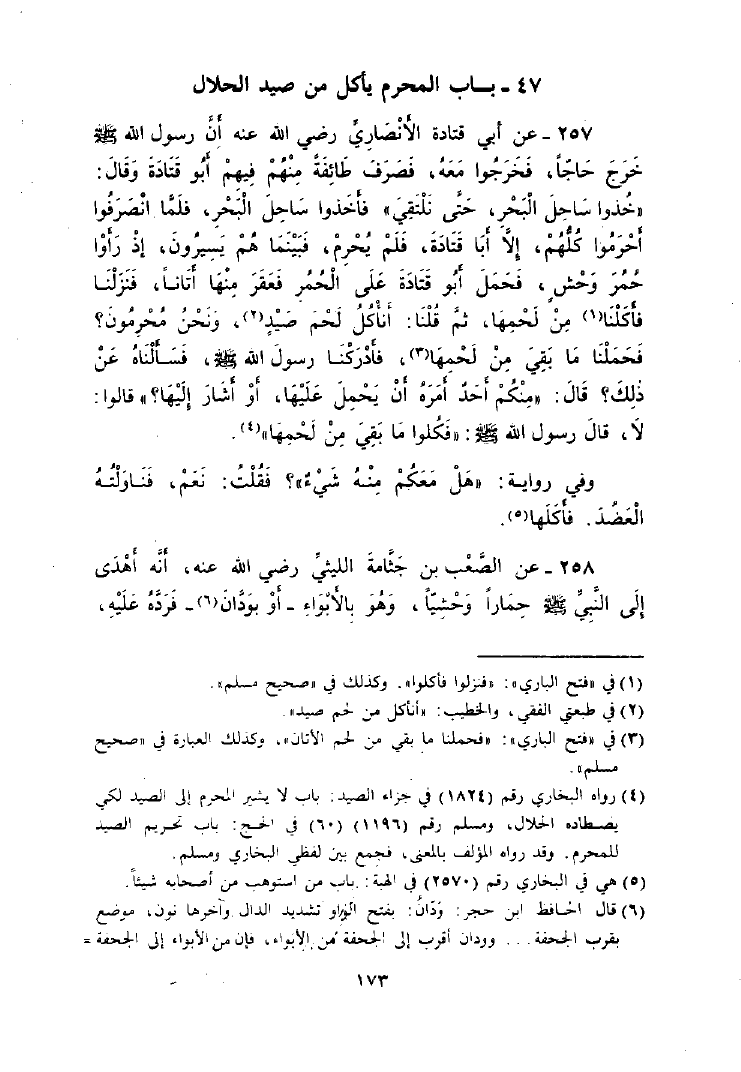 ٤٧ - بـاب المحرم يأكل من صيد الحلال
٢٥٧ - عن أبي قتادة الأَنْصَاريِّ رضي الله عنه أنَّ رسول الله ﷺ
خَرَجَ حَاجّاً، فَخَرَجُوا مَعَهُ، فَصَرَفَ طَائِفَةً مِنْهُمْ فِيهِمْ أَبُو قَتَادَةَ وَقَالَ:
«خُذوا سَاحِلَ الْبَحْرِ، حَتَّى نَلْتَقِيَ» فَأَخَذوا سَاحِلَ الْبَحْرِ، فلَمَّا انْصَرَفُوا
أَحْرَمُوا كُلُّهُمْ، إِلاَّ أَبَا قَتَادَةَ، فَلَمْ يُحْرِمْ، فَبَيْنَمَا هُمْ يَسِيرُونَ، إذْ رَأَوْا
حُمُرَ وَحْشٍ، فَحَمَلَ أَبُو قَتَادَةَ عَلَى الْحُمُرِ فَعَقَرَ مِنْهَا أَتَاناً، فَنَزَلْنَـا
فأَكَلْنَا(١) مِنْ لَحْمِهَا، ثمَّ قُلْنَا: أَنَأْكُلُ لَحْمَ صَيْدٍ(٢)، وَنَحْنُ مُحْرِمُونَ؟
فَحَمَلْنَا مَا بَقِيَ مِنْ لَحْمِهَا(٣)، فأَدْرَكْنَـا رسولَ الله ﷺ، فَسَأَلْنَاهُ عَنْ
ذٰلِكَ؟ قَالَ: «مِنْكُمْ أَحَدٌ أَمَرَهُ أَنْ يَحْمِلَ عَلَيْهَا، أَوْ أَشَارَ إِلَيْهَا؟» قالوا:
لَا، قالَ رسول الله ﷺ: «فَكُلوا مَا بَقِيَ مِنْ لَحْمِهَا»(٤).
وفي روايـة: «هَلْ مَعَكُمْ مِنْـهُ شَيْءٌ»؟ فَقُلْتُ: نَعَمْ، فَنَـاوَلْتُـهُ
الْعَضُدَ. فأَكَلَها(٥).
٢٥٨ - عن الصَّعْبِ بن جَثَّامةَ الليثيِّ رضي الله عنه، أَنَّه أَهْدَى
إِلَى النَّبِيِّ ﷺ حِمَاراً وَحْشِيّاً، وَهُوَ بِالأَبْوَاءِ - أَوْ بوَدَّانَ(٦) - فَرَدَّهُ عَلَيْهِ،
(١) في «فتح الباري»: «فنزلوا فأكلوا». وكذلك في «صحيح مسلم».
(٢) في طبعتي الفقي، والخطيب: «أنأكل من لحم صيد».
(٣) في «فتح الباري»: «فحملنا ما بقي من لحم الأتان»، وكذلك العبارة في «صحيح
مسلم».
(٤) رواه البخاري رقم (١٨٢٤) في جزاء الصيد: باب لا يشير المحرم إلى الصيد لكي
يصطاده الحلال، ومسلم رقم (١١٩٦) (٦٠) في الحج: باب تحريم الصيد
للمحرم. وقد رواه المؤلف بالمعنى، فجمع بين لفظي البخاري ومسلم.
(٥) هي في البخاري رقم (٢٥٧٠) في الهبة: باب من استوهب من أصحابه شيئاً.
(٦) قال الحافظ ابن حجر: وَدّانُ: بفتح الواو تشديد الدال وآخرها نون، موضع
بقرب الجحفة ... وودان أقرب إلى الجحفة من الأبواء، فإن من الأبواء إلى الجحفة =
١٧٣